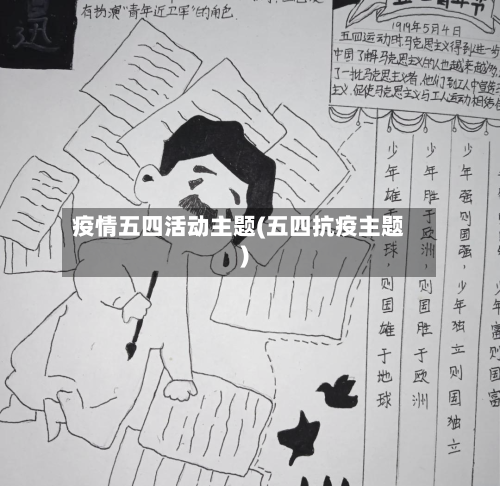 有扮演“青年近卫军”的角色.
1919年5月4日
五四运动时.马克思主义得到进一步
中国了解马克思主义的人也越来越
了一批马克思主义者,他们到工人中宣传
主义.促使马克思主义与工人运动相结合
疫情五四活动主题(五四抗疫主题
)
少年强则国强,少年独立则国独立
少年胜于欧洲,则国胜于欧洲
少年雄于地球,则国雄于地球